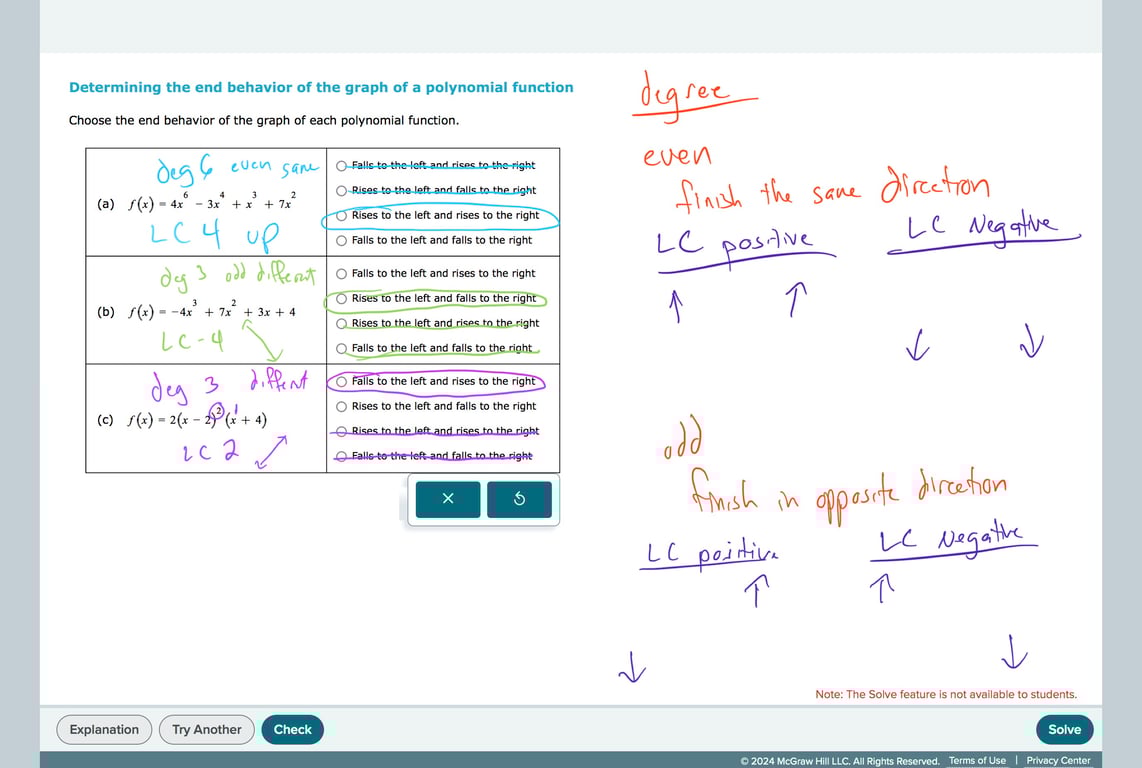 Determining the end behavior of the graph of a polynomial function
Choose the end behavior of the graph of each polynomial function.
deg 6 even same
(a) f(x) = 4x^6 − 3x^4 + x^3 + 7x^2
LC 4 up
Falls to the left and rises to the right
Rises to the left and falls to the right
Rises to the left and rises to the right
Falls to the left and falls to the right
deg 3 odd different
(b) f(x) = −4x^3 + 7x^2 + 3x + 4
LC -4
Falls to the left and rises to the right
Rises to the left and falls to the right
Rises to the left and rises to the right
Falls to the left and falls to the right
deg 3 diffent
(c) f(x) = 2(x − 2)^2 (x^1 + 4)
LC 2
Falls to the left and rises to the right
Rises to the left and falls to the right
Rises to the left and rises to the right
Falls to the left and falls to the right
degree
even
finish the same direction
LC positive
LC Negative
↑ ↑
↓ ↓
odd
finish in opposite direction
LC positive
LC Negative
↑ ↑
↓ ↓
Note: The Solve feature is not available to students.
Explanation
Try Another
Check
Solve
© 2024 McGraw Hill LLC. All Rights Reserved. Terms of Use | Privacy Center